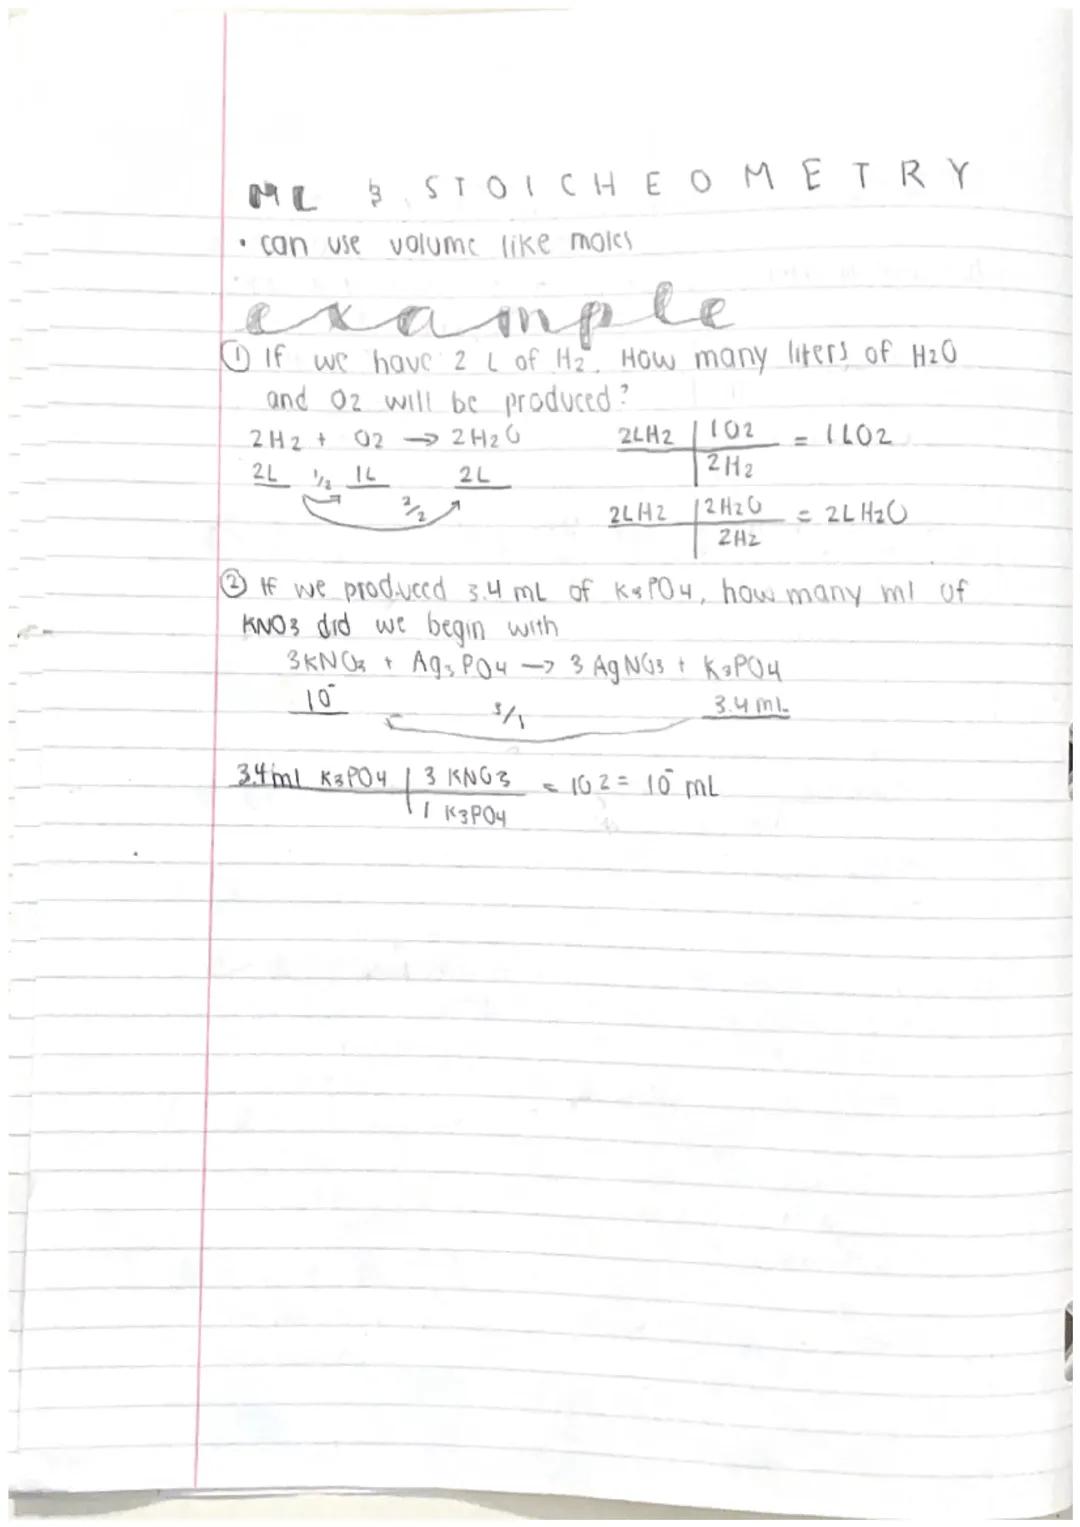 ML & STOICHEOMETRY
• can use volume like moles
example
① If we have 2 L of H2. How many liters of H2O
and O2 will be produced?
2H2 + O2 → 2H2O
2L 1/2 1L 2L
2/2
2LH2 | 1O2 = 1LO2
2H2
2LH2 | 2H2O = 2LH2O
2H2
② If we produced 3.4 mL of K3PO4, how many ml of
KNO3 did we begin with
3KNO3 + Ag3PO4 → 3AgNO3 + K3PO4
10̄ 3/1 3.4mL
3.4ml K3PO4 | 3 KNO3 = 10.2 = 10̄ mL
1 K3PO4